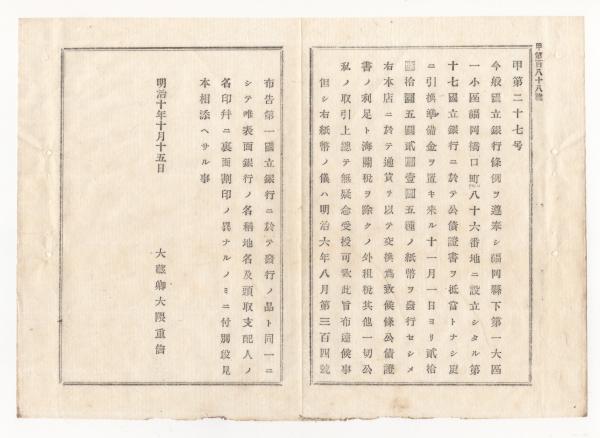 甲第百八十八號
甲第二十七号
今般國立銀行條例ヲ遵奉シ福岡縣下第一大區
一小區福岡橋口町八十六番地ニ設立シタル第
十七國立銀行ニ於テ公債證書ヲ抵當トナシ更
ニ引換準備金ヲ置キ来ル十一月一日ヨリ貳拾
圓拾圓五圓貳圓壹圓五種ノ紙幣ヲ發行セシメ
右本店ニ於テ通貨ヲ以テ交換為致候條公債證
書ノ利足ト海關税ヲ除クノ外租税其他一切公
私ノ取引上總テ無疑念受授可致此旨布達候事
但シ右紙幣ノ儀ハ明治六年八月第三百四號
布告第一國立銀行ニ於テ發行ノ品ト同一ニ
シテ唯表面銀行ノ名稱地名及頭取支配人ノ
名印幷ニ裏面割印ノ異ナルノミニ付別段見
本相添ヘサル事
明治十年十月十五日
大藏卿大隈重信